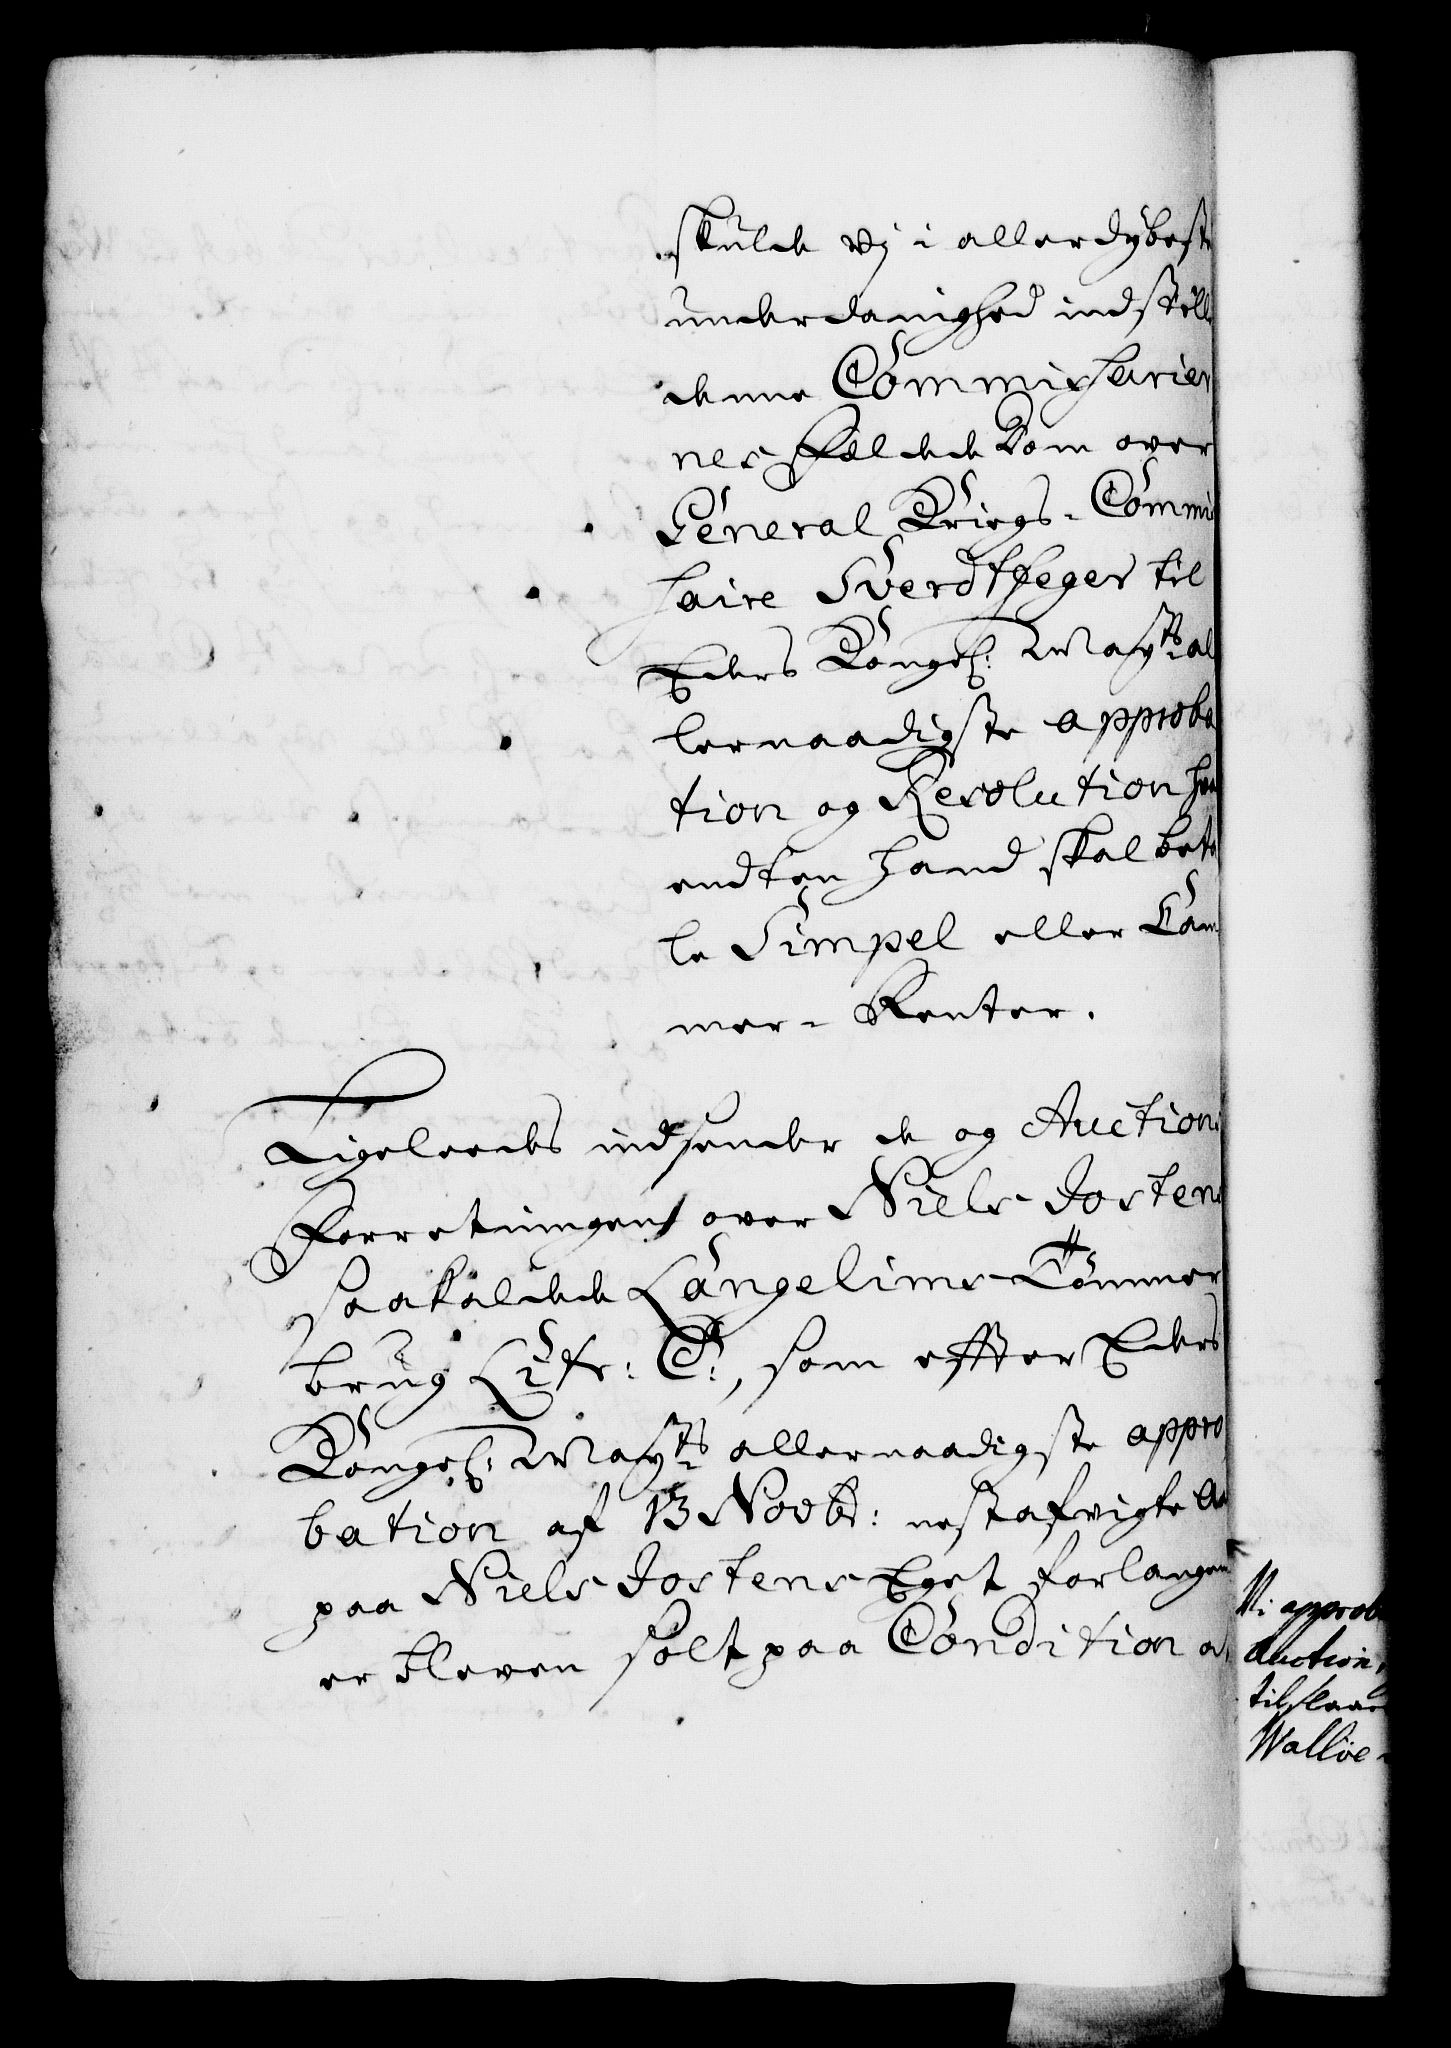 skulde vj i allerdybeste
underdanighed indstille
denne Commissarier
nes fældede Dom over
General Kriegs-Commis
saire Sverdtfeger til
Eders Kongel: Mayts al
lernaadigste approba
tion og Resolution hva
endten hand skal beta
le Simpel eller Cam
mer-Renter.
Ligeleedes indsender de og Auctions
Forretningen over Niels Jostens
saakaldede Langelims Tømmer
brug Litr: C:, som effter Eders
Kongel: Mayts allernaadigste appro
bation af 13 Novb: nestafvigte
paa Niels Jostens Eget forlangen
er bleven solt paa Condition at
Vi approb
Auction
tilslaa
Walløe